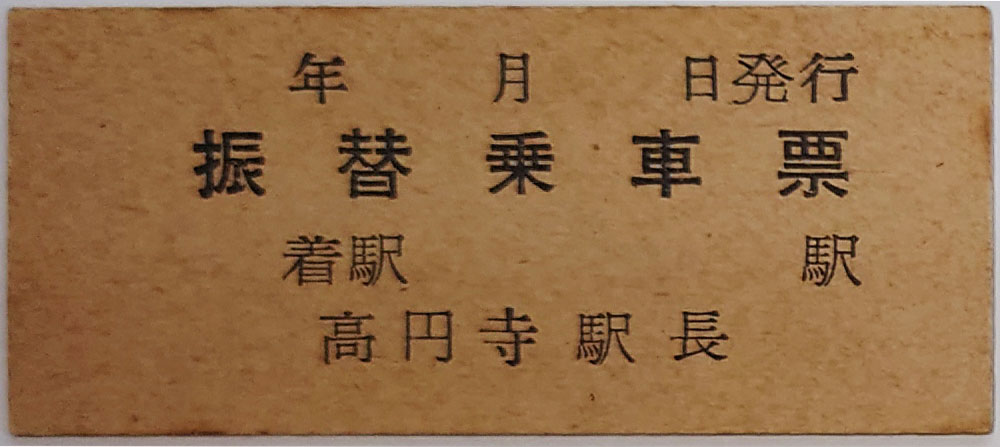 年 月 日発行
振替乗車票
着駅 駅
高円寺駅長